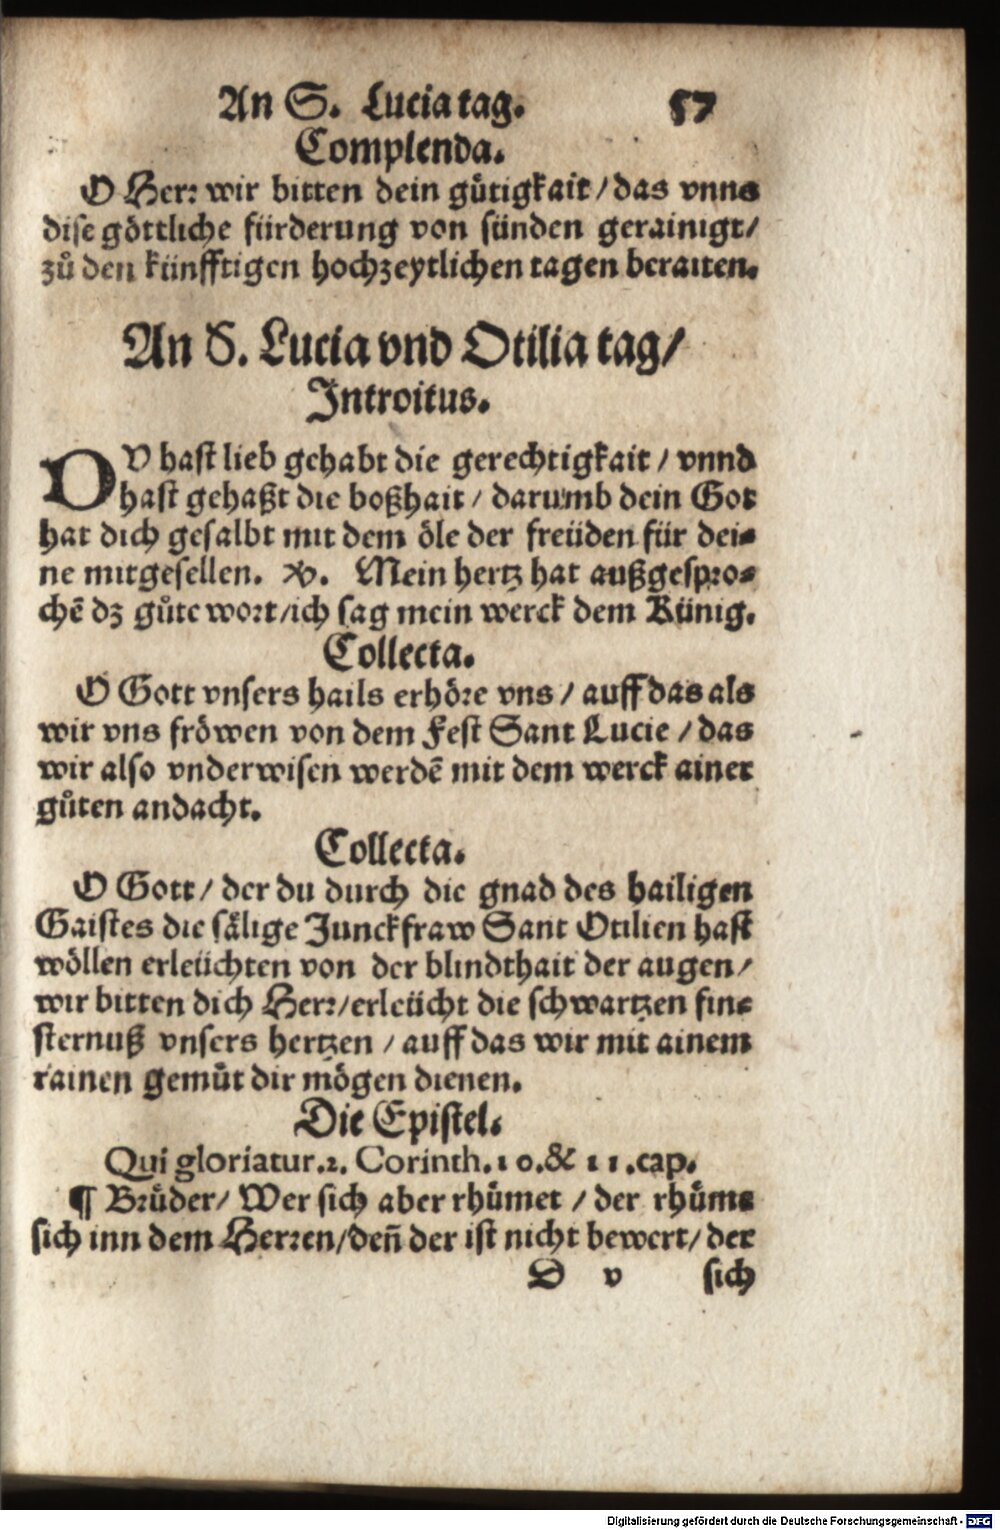 An S. Lucia tag. 57
Complenda.
O Herꝛ wir bitten dein guͤtigkait / das vnns
dise goͤttliche fürderung von sünden gerainigt /
zuͦ den künfftigen hochzeytlichen tagen beraiten.
An S. Lucia vnd Otilia tag /
Introitus.
DV hast lieb gehabt die gerechtigkait / vnnd
hast gehaßt die boßhait / darumb dein Got
hat dich gesalbt mit dem oͤle der freüden für dei⸗
ne mitgesellen. ℣. Mein hertz hat außgespꝛo⸗
chē dz guͦte woꝛt / ich sag mein werck dem Künig.
Collecta.
O Gott vnsers hails erhoͤꝛe vns / auff das als
wir vns froͤwen von dem Fest Sant Lucie / das
wir also vnderwisen werdē mit dem werck ainer
guͦten andacht.
Collecta.
O Gott / der du durch die gnad des hailigen
Gaistes die saͤlige Junckfraw Sant Otilien hast
woͤllen erleüchten von der blindthait der augen /
wir bitten dich Herꝛ / erleücht die schwartzen fin⸗
sternuß vnsers hertzen / auff das wir mit ainem
rainen gemuͤt dir moͤgen dienen.
Die Epistel.
Qui gloriatur. 2. Corinth. 10. & 11. cap.
¶ Bꝛuͤder / Wer sich aber rhuͤmet / der rhuͤme
sich inn dem Herꝛen / deñ der ist nicht bewert / der
D v sich
Digitalisierung gefördert durch die Deutsche Forschungsgemeinschaft - DFG